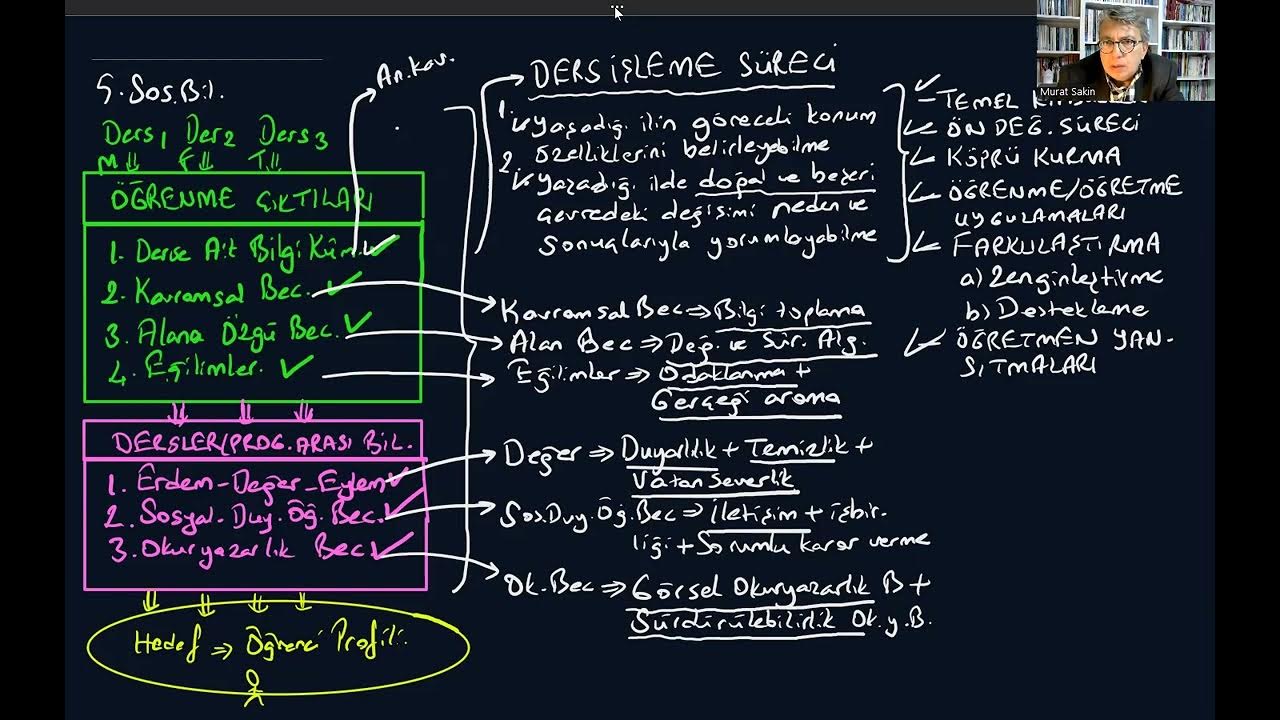 Murat Sakin
5. Sos. Bil.
Ders1 Der2 Ders3
M F T
ÖĞRENME ÇIKTILARI
1. Derse Ait Bilgi Küm.
2. Kavramsal Bec.
3. Alana Özgü Bec.
4. Eğilimler.
DERSLER/PROG. ARASI BİL.
1. Erdem-Değer-Eylem
2. Sosyal-Duy. Öğ. Bec.
3. Okuryazarlık Bec
Hedef ⇒ Öğrenci Profili.
An. Kav.
DERS İŞLEME SÜRECİ
1. Yaşadığı ilin göreceli konum
özelliklerini belirleyebilme
2. Yaşadığı ilde doğal ve beşeri
çevredeki değişimi neden ve
sonuçlarıyla yorumlayabilme
Kavramsal Bec ⇒ Bilgi toplama
Alan Bec ⇒ Değ. ve Sür. Alg.
Eğilimler ⇒ Odaklanma +
Gerçeği arama
Değer ⇒ Duyarlılık + Temizlik +
Vatanseverlik
Sos. Duy. Öğ. Bec ⇒ İletişim + işbir-
liği + Sorumlu karar verme
Ok. Bec ⇒ Görsel Okuryazarlık B +
Sürdürülebilirlik Ok.y.B.
- TEMEL
ÖN DEĞ. SÜRECİ
KÖPRÜ KURMA
ÖĞRENME/ÖĞRETME
UYGULAMALARI
FARKLILAŞTIRMA
a) Zenginleştirme
b) Destekleme
ÖĞRETMEN YAN-
SITMALARI